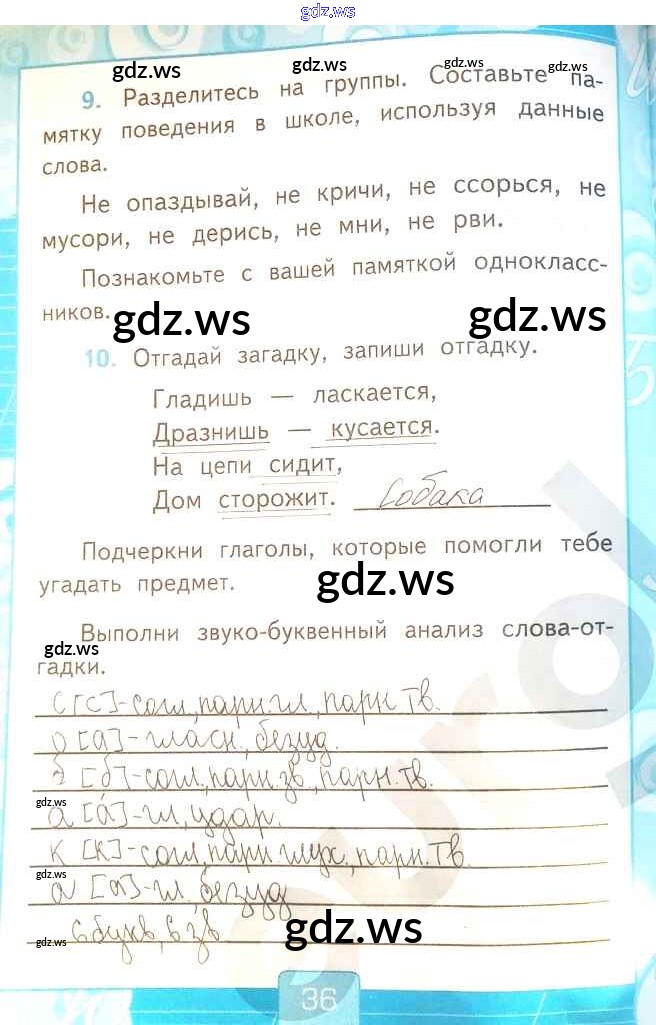 gdz.ws
gdz.ws gdz.ws gdz.ws gdz.ws
9. Разделитесь на группы. Составьте па-
мятку поведения в школе, используя данные
слова.
Не опаздывай, не кричи, не ссорься, не
мусори, не дерись, не мни, не рви.
Познакомьте с вашей памяткой однокласс-
ников.
gdz.ws gdz.ws
10. Отгадай загадку, запиши отгадку.
Гладишь — ласкается,
Дразнишь — кусается.
На цепи сидит,
Дом сторожит. Собака
Подчеркни глаголы, которые помогли тебе
угадать предмет.
gdz.ws
Выполни звуко-буквенный анализ слова-от-
гадки.
gdz.ws
С [с]-согл, парн. гл, парн тв.
о [а]-гласн, безуд.
б [б]-согл, парн. зв, парн. тв.
gdz.ws
а [а́]-гл, удар.
к [к]-согл, парн глух, парн. тв.
gdz.ws
а [а]-гл, безуд
6 букв, 6 зв
gdz.ws gdz.ws
36